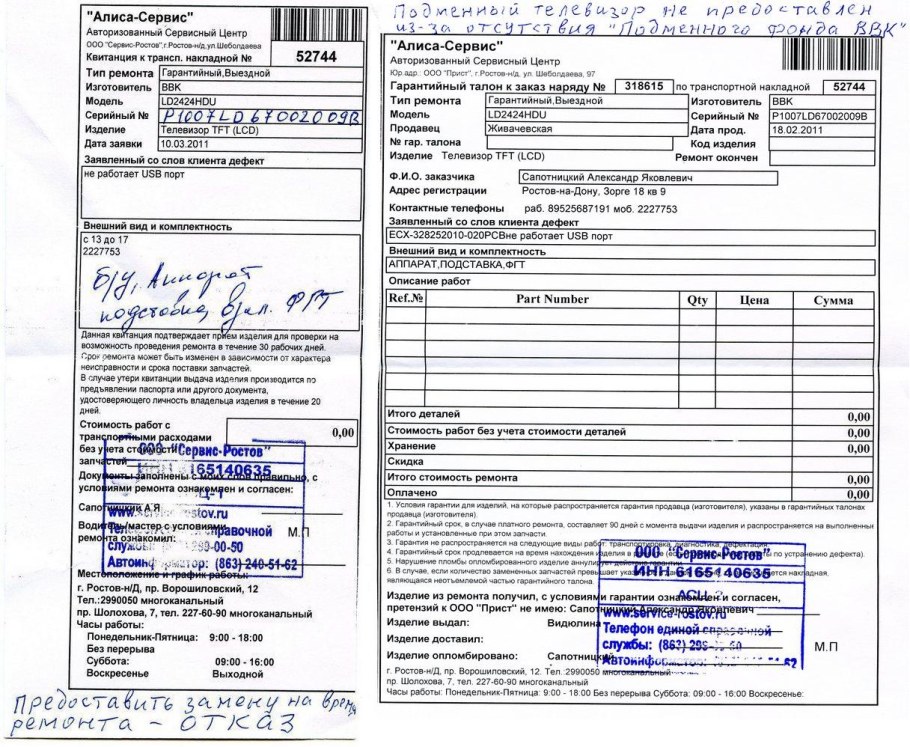 "Алиса-Сервис"
Авторизованный Сервисный Центр
ООО "Сервис-Ростов",г.Ростов-н/д,ул.Шеболдаева
Квитанция к трансп. накладной № 52744
Тип ремонта Гарантийный,Выездной
Изготовитель BBK
Модель LD2424HDU
Серийный № P1007LD67002009B
Изделие Телевизор TFT (LCD)
Дата заявки 10.03.2011
Заявленный со слов клиента дефект
не работает USB порт
Внешний вид и комплектность
с 13 до 17
2227753
б/у, Аппарат
подставка, ФГТ
Данная квитанция подтверждает прием изделия для проверки на
возможность проведения ремонта в течение 30 рабочих дней.
Срок ремонта может быть изменен в зависимости от характера
неисправности и срока поставки запчастей.
В случае утери квитанции выдача изделия производится по
предъявлении паспорта или другого документа,
удостоверяющего личность владельца изделия в течение 20
дней.
Стоимость работ с
транспортными расходами
без учета стоимости
запчастей
0,00
ООО "Сервис-Ростов"
ИНН 6165140635
Документы заполнены с моих слов правильно, с
условиями ремонта ознакомлен и согласен:
Сапотницкий А.Я
www.service-rostov.ru
Водитель/мастер с условиями
ремонта ознакомил:
М.П
службы: 290-00-50
Автоинформатор: (863) 240-51-62
Местоположение и график работы:
г. Ростов-Н/Д, пр. Ворошиловский, 12
Тел.:2990050 многоканальный
пр. Шолохова, 7, тел. 227-60-90 многоканальный
Часы работы:
Понедельник-Пятница: 9:00 - 18:00
Без перерыва
Суббота: 09:00 - 16:00
Воскресенье Выходной
Предоставить замену на время
ремонта - ОТКАЗ
Подменный телевизор не предоставлен
из-за отсутствия "Подменного Фонда BBK"
"Алиса-Сервис"
Авторизованный Сервисный Центр
Юр.адр.: ООО "Прист", г.Ростов-н/д, ул. Шеболдаева, 97
Гарантийный талон к заказ наряду № 318615 по транспортной накладной 52744
Тип ремонта Гарантийный,Выездной Изготовитель BBK
Модель LD2424HDU Серийный № P1007LD67002009B
Продавец Живачевская Дата прод. 18.02.2011
№ гар. талона Код изделия
Изделие Телевизор TFT (LCD) Ремонт окончен
Ф.И.О. заказчика Сапотницкий Александр Яковлевич
Адрес регистрации Ростов-на-Дону, Зорге 18 кв 9
Контактные телефоны раб. 89525687191 моб. 2227753
Заявленный со слов клиента дефект
ECX-328252010-020PCBне работает USB порт
Внешний вид и комплектность
АППАРАТ,ПОДСТАВКА,ФГТ
Описание работ
Ref.№ Part Number Qty Цена Сумма
Итого деталей 0,00
Стоимость работ без учета стоимости деталей 0,00
Хранение 0,00
Скидка
Итого стоимость ремонта 0,00
Оплачено 0,00
1. Условия гарантии для изделий, на которые распространяется гарантия продавца (изготовителя), указаны в гарантийных талонах
продавца (изготовителя).
2. Гарантийный срок, в случае платного ремонта, составляет 90 дней с момента выдачи изделия и распространяется на выполненные
работы и установленные при этом запчасти.
3. Гарантия не распространяется на следующие виды работ: транспортировка, диагностика, дефектация.
4. Гарантийный срок продлевается на время нахождения изделия в по устранению дефекта).
5. Нарушение пломбы опломбированного изделие аннулирует действие гарантии.
6. В случае, если количество замененных запчастей превышает накладная,
являющаяся неотъемлемой частью гарантийного талона.
ООО "Сервис-Ростов"
ИНН 6165140635
АСЦ-2
Изделие из ремонта получил, с условиями гарантии ознакомлен и согласен,
претензий к ООО "Прист" не имею: Сапотницкий Александр Яковлевич
www.service-rostov.ru
Изделие выдал: Видюлина
Телефон единой справочной
Изделие доставил:
службы:
М.П
Изделие опломбировано: Сапотницкий
Автоинформатор:
г. Ростов-Н/Д, пр. Ворошиловский, 12. Тел.:2990050 многоканальный
пр. Шолохова, 7, тел. 227-60-90 многоканальный
Часы работы: Понедельник-Пятница: 9:00 - 18:00 Без перерыва Суббота: 09:00 - 16:00 Воскресенье: